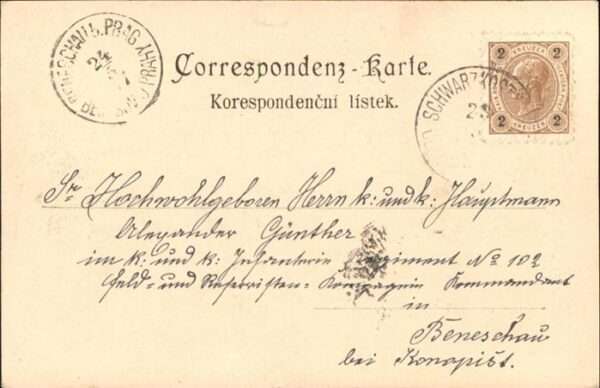 BENESCHAU b. PRAG
24
BENEŠOV u PRAHY
Correspondenz-Karte.
Korespondenční lístek.
2 2
KREUZER
2 2
SCHWARZKOSTE
Sr Hochwohlgeboren Herrn k: und k: Hauptmann
Alexander Günther
im k: und k: Infanterie Regiment No 102
Feld- und Reservisten- Kompagnie Kommandant
in
Beneschau
bei Konopist.